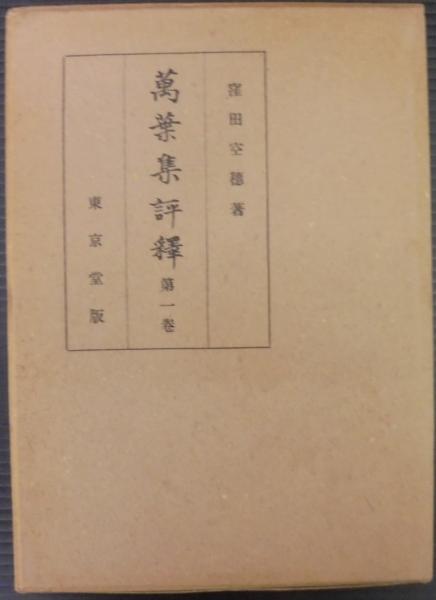 窪田空穂著
萬葉集評釋 第一卷
東京堂版